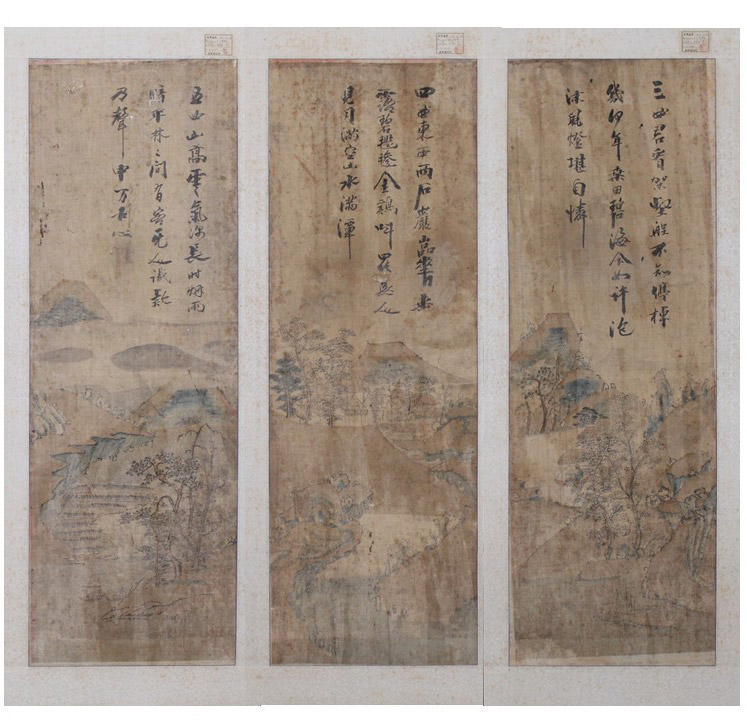 三曲君看架壑船不知停棹
幾何年桑田碧海今如許泡
沫風燈堪自憐
四曲東西兩石巖嵓華垂
露碧毿金鷄叫罷無人
見月滿空山水滿潭
五曲山高雲氣深長時烟雨
暗平林々間有客无人識欸
乃聲中万古心